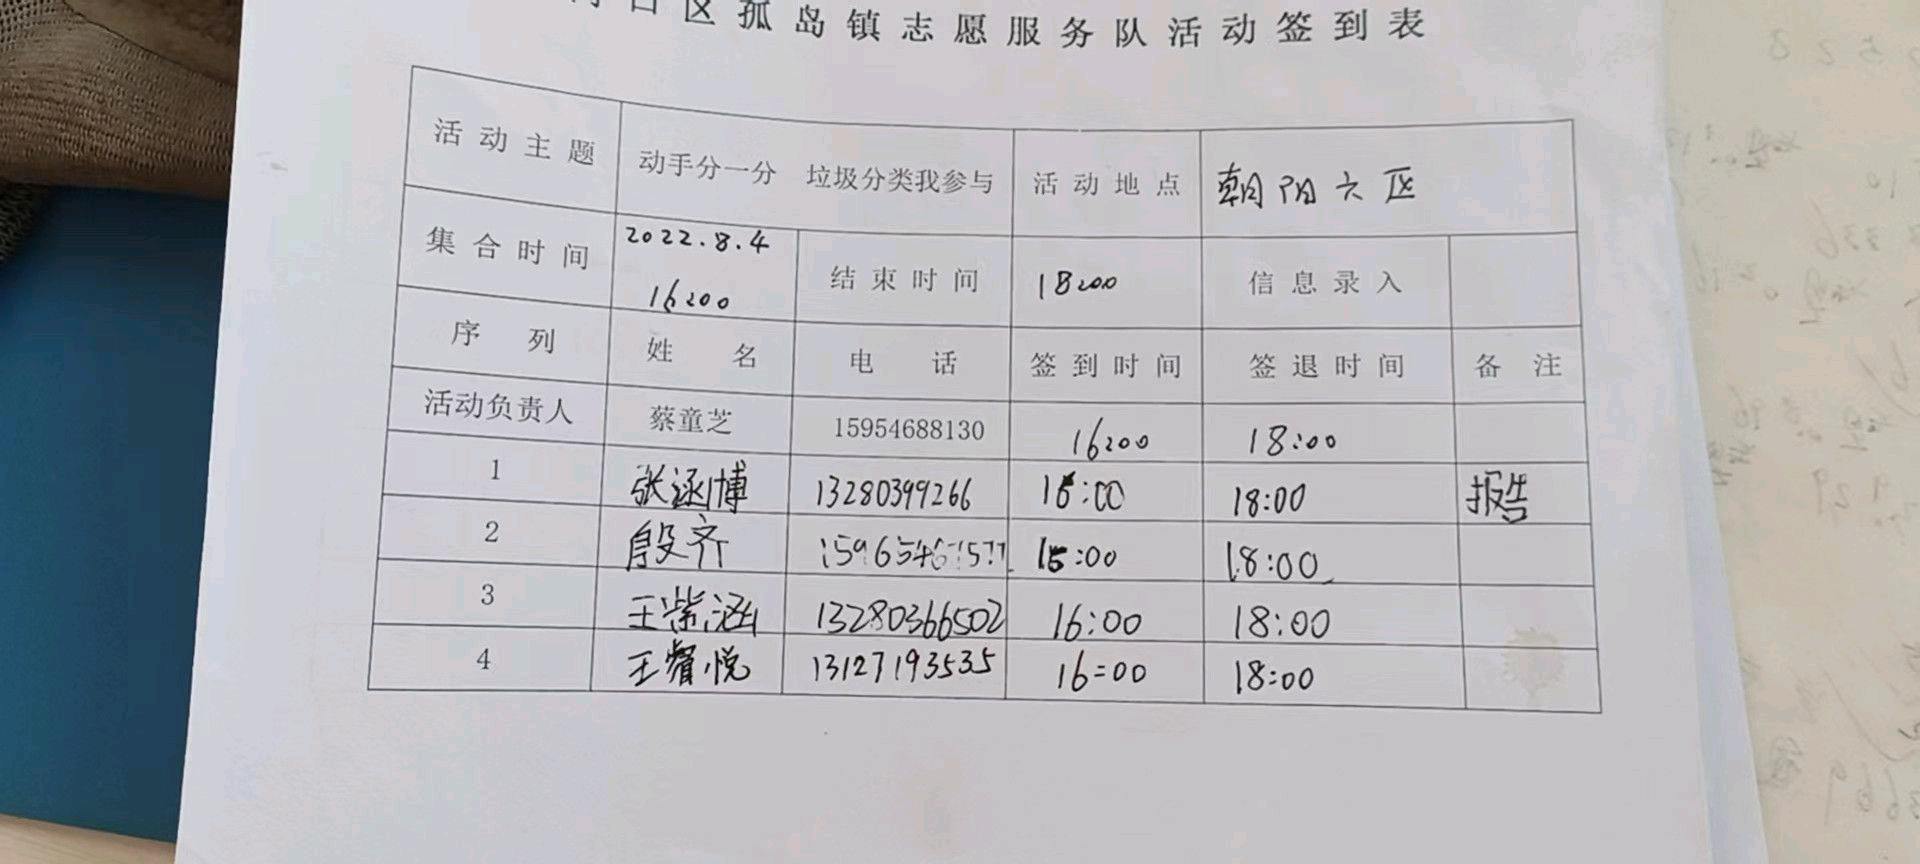 口区孤岛镇志愿服务队活动签到表
活动主题 动手分一分 垃圾分类我参与 活动地点 朝阳六区
集合时间 2022.8.4 16:00 结束时间 18:00 信息录入
序列 姓名 电话 签到时间 签退时间 备注
活动负责人 蔡童芝 15954688130 16:00 18:00
1 张涵博 13280399266 16:00 18:00 报告
2 殷齐 18:00
3 王紫涵 13280366502 16:00 18:00
4 王睿悦 13127193535 16:00 18:00